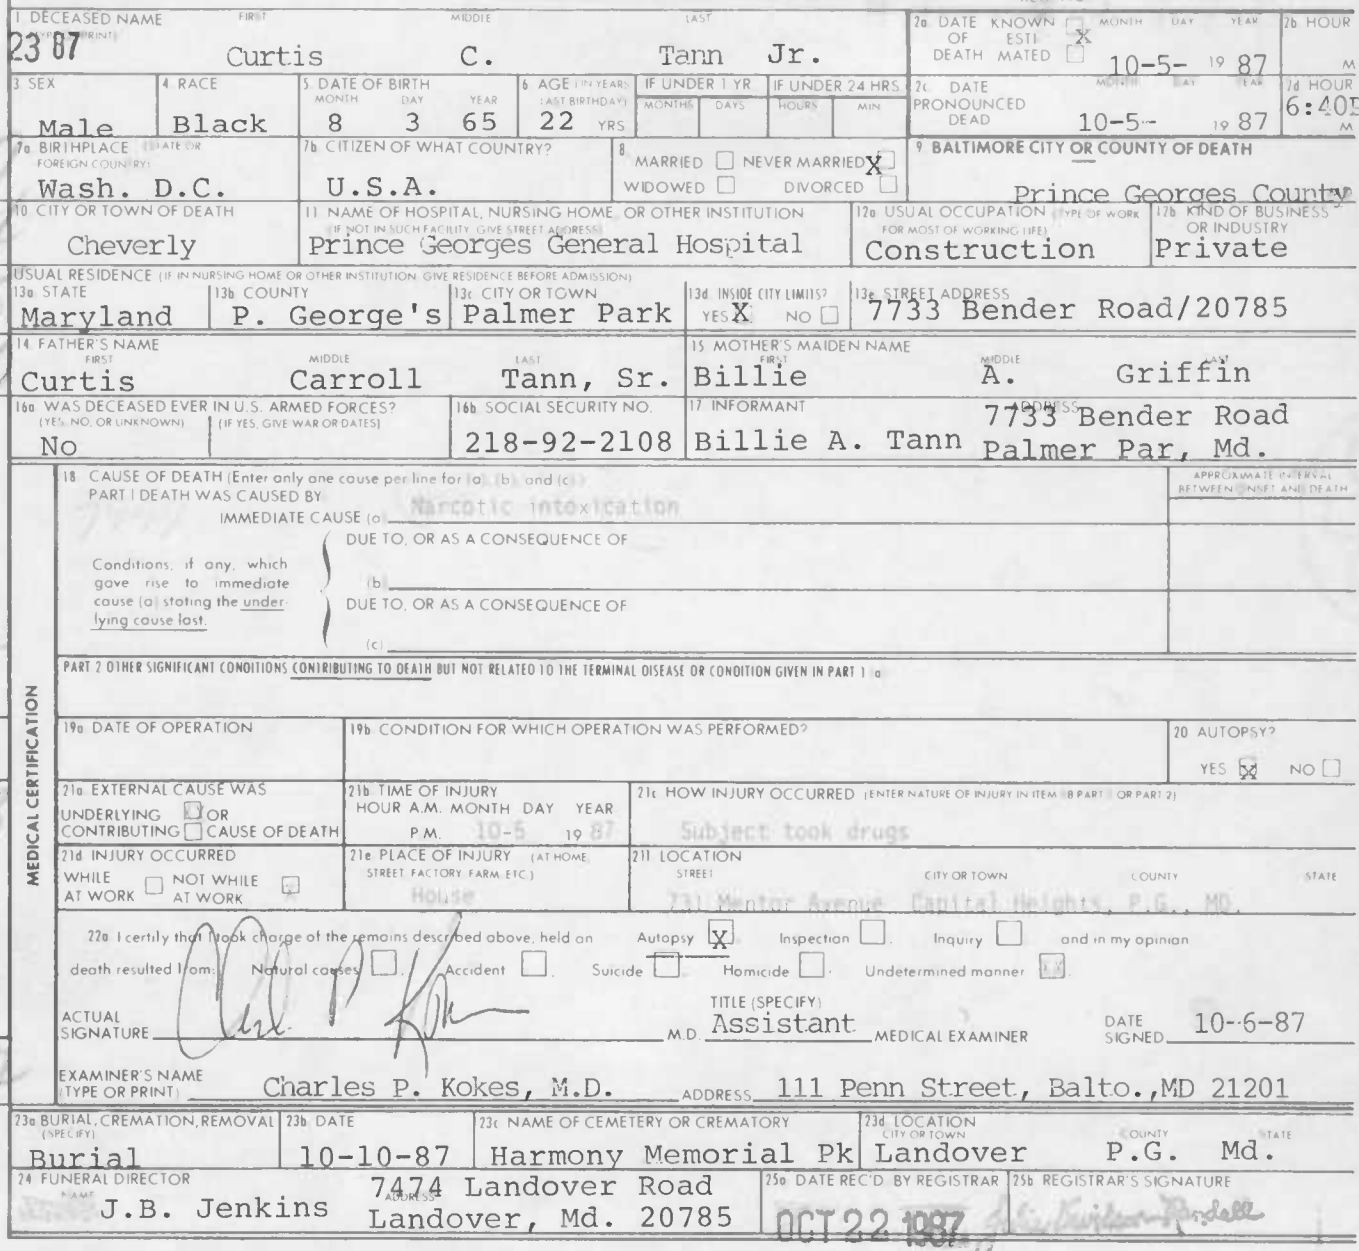 1 DECEASED NAME FIRST MIDDLE LAST
23 87
Curtis C. Tann Jr.
2a DATE KNOWN OF ESTI MATED DEATH X MONTH DAY YEAR
10-5- 19 87
2b HOUR M
3 SEX
Male
4 RACE
Black
5 DATE OF BIRTH
MONTH DAY YEAR
8 3 65
6 AGE (IN YEARS LAST BIRTHDAY)
22 YRS
IF UNDER 1 YR
MONTHS DAYS
IF UNDER 24 HRS
HOURS MIN
2c DATE PRONOUNCED DEAD MONTH DAY YEAR
10-5-- 19 87
2d HOUR
6:40 M
7a BIRTHPLACE (STATE OR FOREIGN COUNTRY)
Wash. D.C.
7b CITIZEN OF WHAT COUNTRY?
U.S.A.
8 MARRIED NEVER MARRIED X
WIDOWED DIVORCED
9 BALTIMORE CITY OR COUNTY OF DEATH
Prince Georges County
10 CITY OR TOWN OF DEATH
Cheverly
11 NAME OF HOSPITAL, NURSING HOME, OR OTHER INSTITUTION
(IF NOT IN SUCH FACILITY, GIVE STREET ADDRESS)
Prince Georges General Hospital
12a USUAL OCCUPATION (TYPE OF WORK
FOR MOST OF WORKING LIFE)
Construction
12b KIND OF BUSINESS
OR INDUSTRY
Private
USUAL RESIDENCE (IF IN NURSING HOME OR OTHER INSTITUTION GIVE RESIDENCE BEFORE ADMISSION)
13a STATE
Maryland
13b COUNTY
P. George's
13c CITY OR TOWN
Palmer Park
13d INSIDE CITY LIMITS?
YES X NO
13e STREET ADDRESS
7733 Bender Road/20785
14 FATHER'S NAME
FIRST MIDDLE LAST
Curtis Carroll Tann, Sr.
15 MOTHER'S MAIDEN NAME
FIRST MIDDLE LAST
Billie A. Griffin
16a WAS DECEASED EVER IN U.S. ARMED FORCES?
(YES, NO, OR UNKNOWN) (IF YES, GIVE WAR OR DATES)
No
16b SOCIAL SECURITY NO.
218-92-2108
17 INFORMANT ADDRESS
Billie A. Tann
7733 Bender Road
Palmer Par, Md.
MEDICAL CERTIFICATION
18 CAUSE OF DEATH (Enter only one cause per line for (a) (b) and (c))
PART I DEATH WAS CAUSED BY
APPROXIMATE INTERVAL
BETWEEN ONSET AND DEATH
IMMEDIATE CAUSE (a) Narcotic intoxication
DUE TO, OR AS A CONSEQUENCE OF
Conditions, if any, which
gave rise to immediate
cause (a) stating the under-
lying cause last.
(b)
DUE TO, OR AS A CONSEQUENCE OF
(c)
PART 2 OTHER SIGNIFICANT CONDITIONS CONTRIBUTING TO DEATH BUT NOT RELATED TO THE TERMINAL DISEASE OR CONDITION GIVEN IN PART 1 a
19a DATE OF OPERATION
19b CONDITION FOR WHICH OPERATION WAS PERFORMED?
20 AUTOPSY?
YES X NO
21a EXTERNAL CAUSE WAS
UNDERLYING OR
CONTRIBUTING CAUSE OF DEATH
21b TIME OF INJURY
HOUR A.M. MONTH DAY YEAR
P.M. 10-5 19 87
21c HOW INJURY OCCURRED (ENTER NATURE OF INJURY IN ITEM 18 PART 1 OR PART 2)
Subject took drugs
21d INJURY OCCURRED
WHILE AT WORK NOT WHILE AT WORK X
21e PLACE OF INJURY (AT HOME,
STREET, FACTORY, FARM, ETC.)
House
21f LOCATION
STREET CITY OR TOWN COUNTY STATE
731 Mentor Avenue Capital Heights, P.G., MD.
22a I certify that I took charge of the remains described above, held an Autopsy X Inspection Inquiry and in my opinion
death resulted from: Natural causes Accident Suicide Homicide Undetermined manner XX
ACTUAL
SIGNATURE M.D.
TITLE (SPECIFY)
Assistant MEDICAL EXAMINER
DATE
SIGNED 10-6-87
EXAMINER'S NAME
(TYPE OR PRINT) Charles P. Kokes, M.D. ADDRESS 111 Penn Street, Balto.,MD 21201
23a BURIAL, CREMATION, REMOVAL
(SPECIFY)
Burial
23b DATE
10-10-87
23c NAME OF CEMETERY OR CREMATORY
Harmony Memorial Pk
23d LOCATION
CITY OR TOWN COUNTY STATE
Landover P.G. Md.
24 FUNERAL DIRECTOR
NAME ADDRESS
J.B. Jenkins
7474 Landover Road
Landover, Md. 20785
25a DATE REC'D BY REGISTRAR
OCT 22 1987
25b REGISTRAR'S SIGNATURE
Julia Davidson-Randall